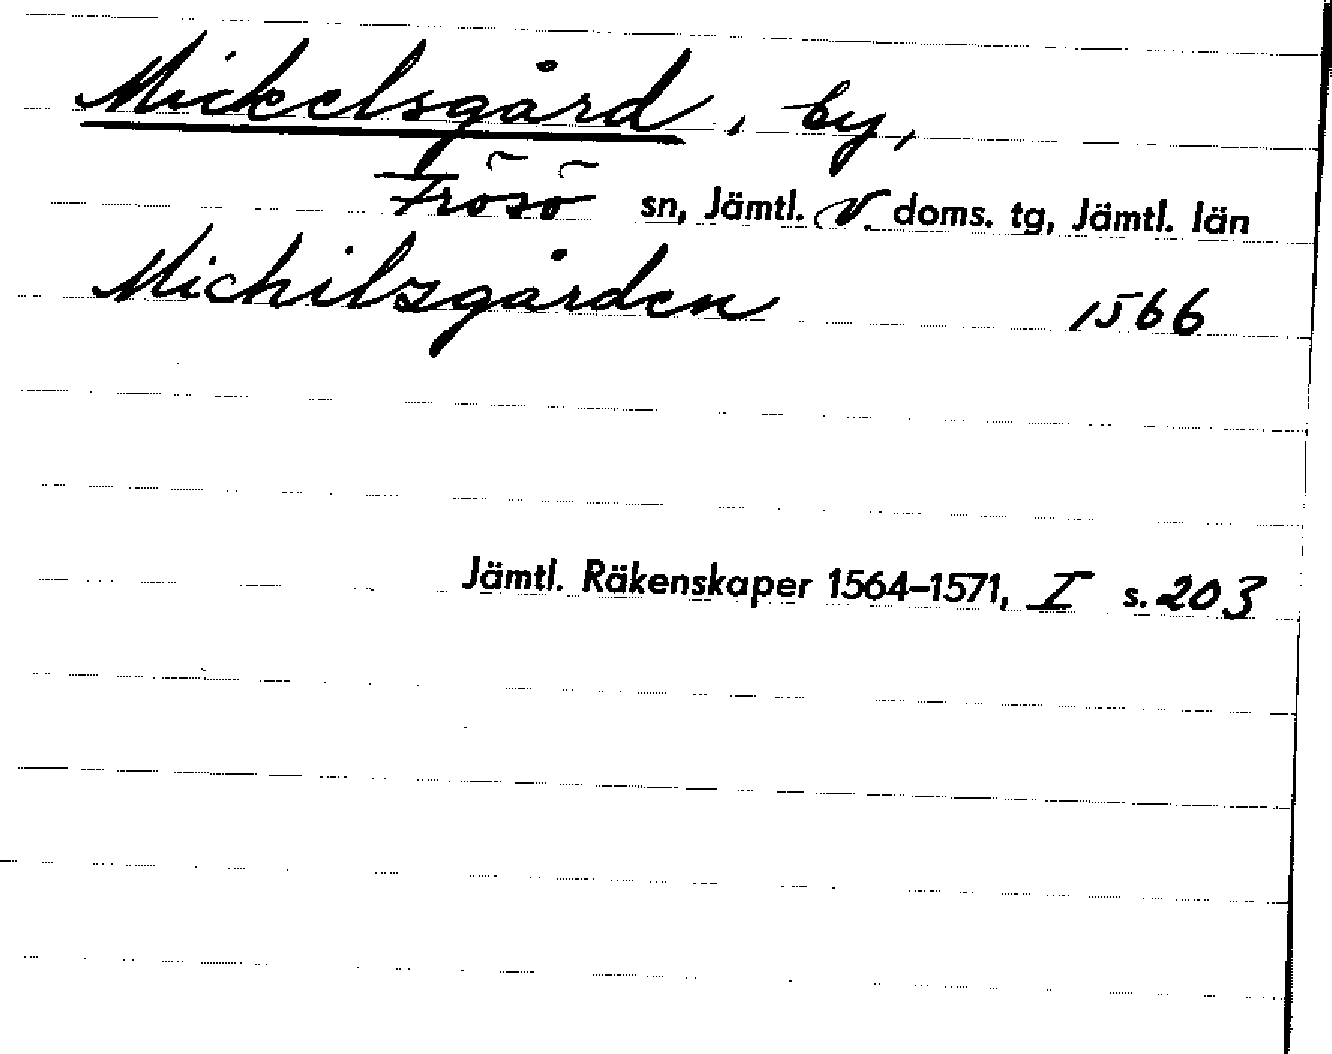 Mickelsgård, by,
Frösö sn, Jämtl. v. doms. tg, Jämtl. län
Michilzgården 1566
Jämtl. Räkenskaper 1564–1571, I s. 203